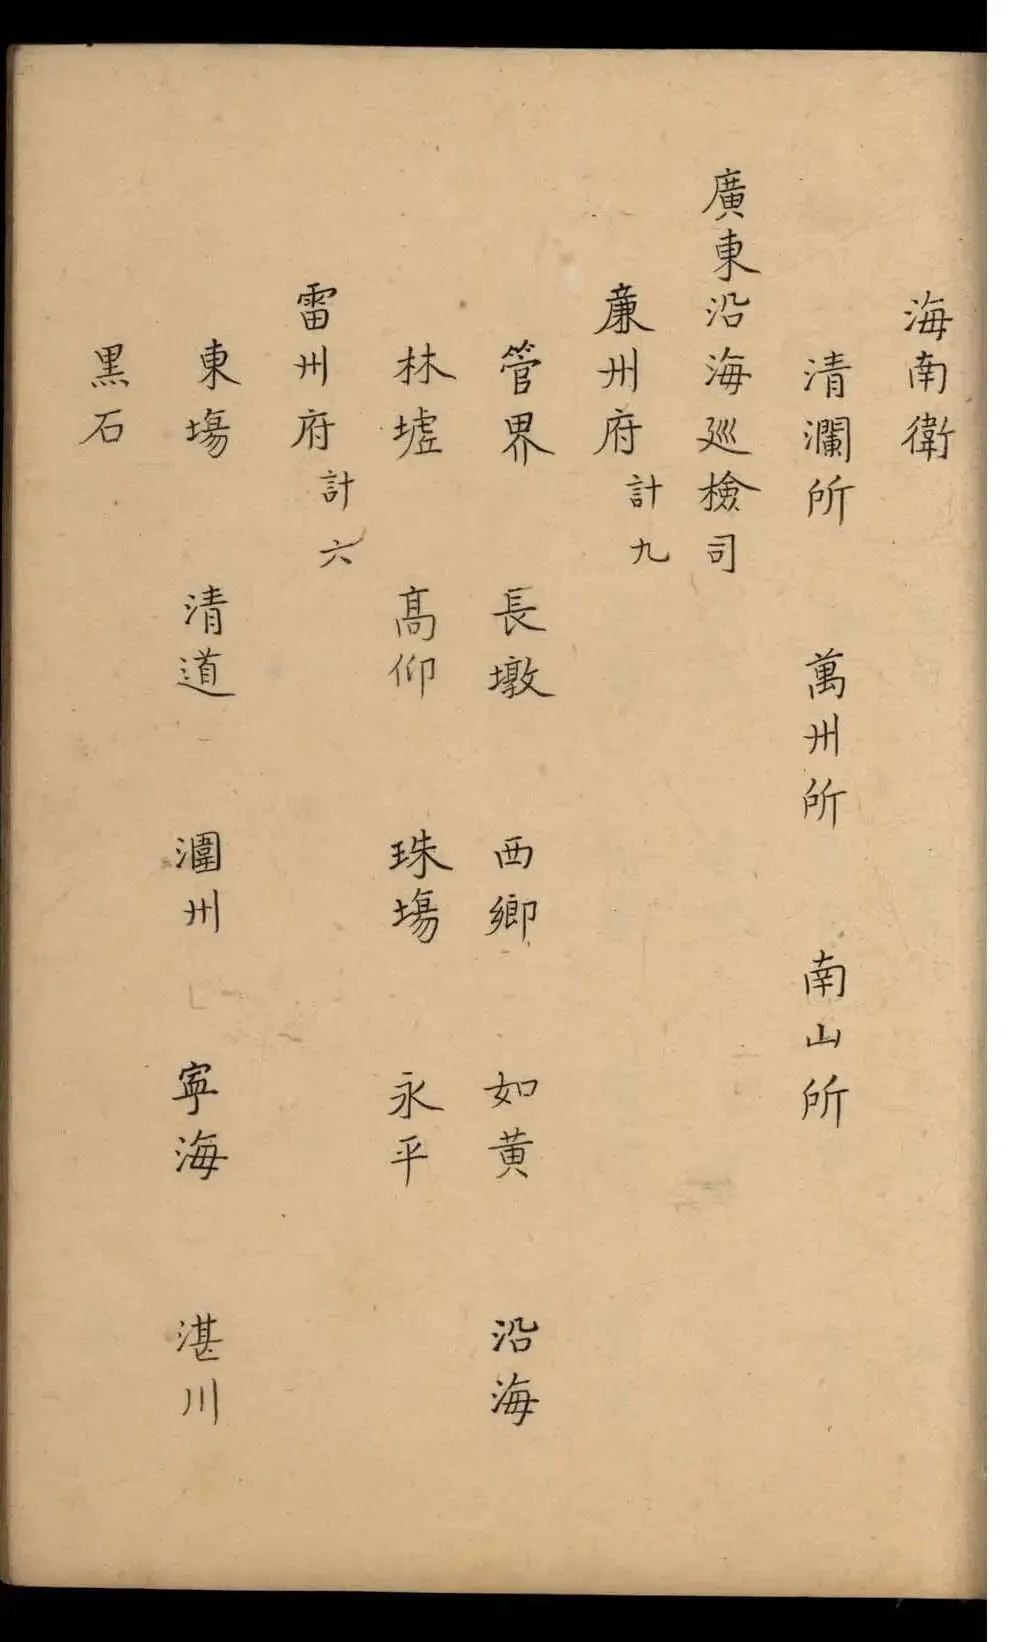 海南衛
清瀾所 萬州所 南山所
廣東沿海廵檢司
亷州府 計九
管界 長墩 西鄉 如黄 沿海
林墟 髙仰 珠塲 永平
雷州府 計六
東塲 清道 潿州 寧海 湛川
黒石